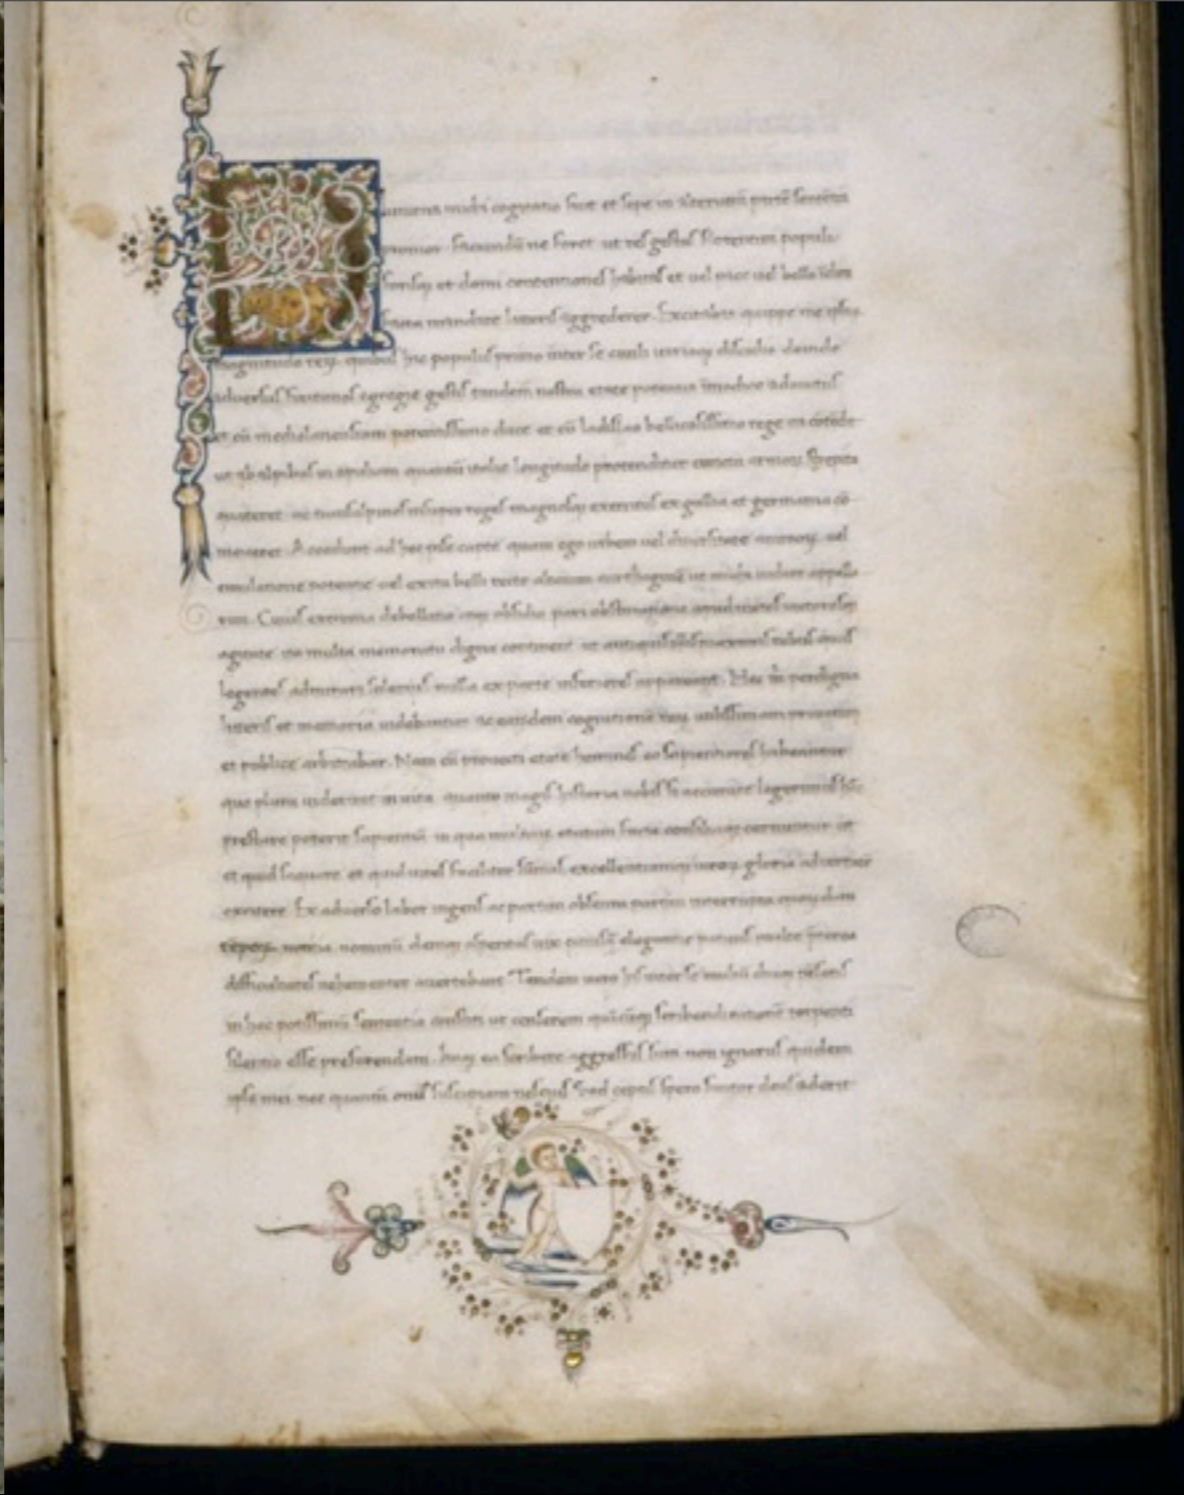 mihi cogitatio fuit et sepe in alterutrã partẽ sententia
pronior. faciundũ ne foret ut res gestas florentini populi
forisq et domi contentiones habitas et uel pace uel bello
facta mandare litteris aggrederer. Excitabat quippe me ipsaꝝ
magnitudo reꝝ. quibus hic populus primo inter se ciuili discidio deinde
aduersus finitimos egregie gestis tandem nostra etate potentia imodice adauctus
et cũ mediolanensium potentissimo duce et cũ ladislao bellicosissimo rege ita
ut ab alpibus in apuliam quantũ italie longitudo protenditur cuncta armoꝝ strepitu
quateret. ac transalpinos insuper reges magnosq exercitus ex gallia et germania cõ
moueret. Accedunt ad hec pise capte quam ego urbem uel diuersitate animoꝝ. uel
emulatione potentie uel exitu belli recte alteram carthaginẽ ut mihi uideor appella
rim. Cuius extrema debellatio atq obsidio pari obstinatione apud uictos uictoresq
agitate ita multa memoratu digna continent ut
legentes admirari solemus nulla ex parte inferiores appareant. Hec perdigna
litteris et memoria uidebantur ac eaꝛdem cognitionẽ reꝝ utilissimam priuatim
et publice arbitrabar. Nam cũ prouecti etate homines eo sapientiores habeantur
quo plura uiderunt in uita. quanto magis historia nobis si accurate legerimus hãc
prestare poterit sapientiã in qua multaꝝ etatum facta consiliaq cernuntur ut
et quid sequare et quid uites facilius sumas. excellentiumq uiroꝝ gloria ad uirtutẽ
excitere. Ex aduerso labor ingens ac partim obscura partim interrupta quoꝝdam
tẽpoꝝ notitia nominũ deniq asperitas uix
difficultates uehementer auertebant. Tandem uero his inter se multũ diuq pẽsatis
in hac potissimũ sententia constiti ut censerem scribendi torpenti
silentio esse preferendam. Itaq ea scribere aggressus sum non ignarus quidem
ipse mei nec quantũ onus suscipiam nescius. Sed ceptis spero fautor deus aderit